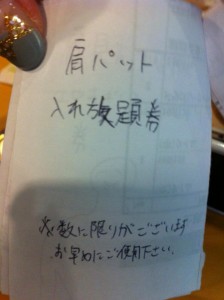 肩パット
入れ放題券
数に限りがございます
お早めにご使用下さい。